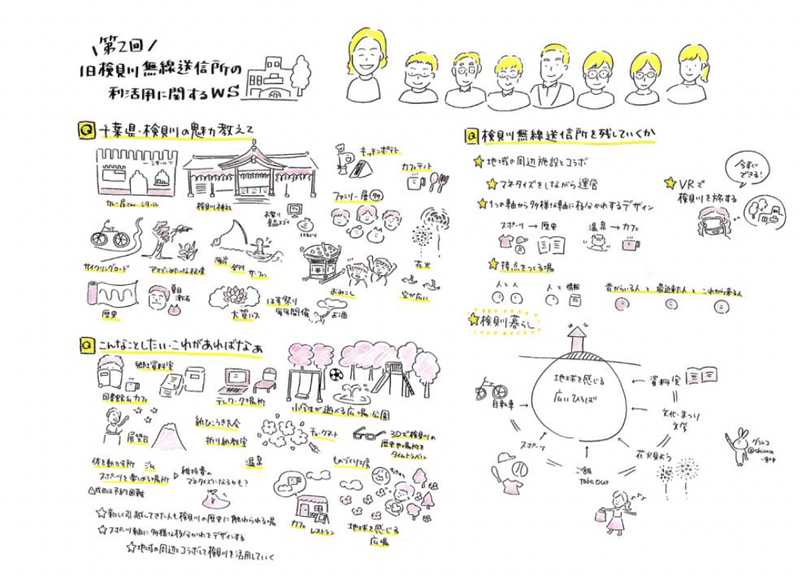 第2回
旧検見川無線送信所の
利活用に関するWS
Q 千葉県・検見川の魅力教えて
検見川神社
キッチンポテト
カフェテント
ファミリー層
サイクリングロード
海岸
サーフィン
花火
歴史
夏目
漱石
大賀ハス
おみこし
お酒
空が広い
Q こんなことしたい・これがあればなぁ
郷土資料室
図書館&カフェ
テレワーク場所
小学生が遊べる広場・公園
展望台
紙ひこうき大会
折り紙教室
3Dで検見川の
歴史や場所を
タイムトラベル
体を動かす所 ジム
スポーツを楽しめる場所
温泉
ものづくり工房
維持費の
マネタイズになるかも?
カフェ
レストラン
地球を感じる
広場
☆新しく引越してきた人も検見川の歴史に触れられる場
☆スポーツ軸に多様な枝分かれをデザインする
☆地域の周辺とコラボして検見川を活用していく
Q 検見川無線送信所を残していくか
地域の周辺施設とコラボ
マネタイズをしながら運営
1つの軸から多様な軸に枝分かれするデザイン
スポーツ → 歴史
温泉 → カフェ
接点をつくる場
人と人
人と情報
昔からいる人
最近来た人
これから来る人
VRで
検見川を旅する
今すぐ
できる!
検見川暮らし
地球を感じる
広いひろば
自転車
資料室
文化・まつり
文学
スポーツ
花火見よう
ご飯
take out
グラレコ